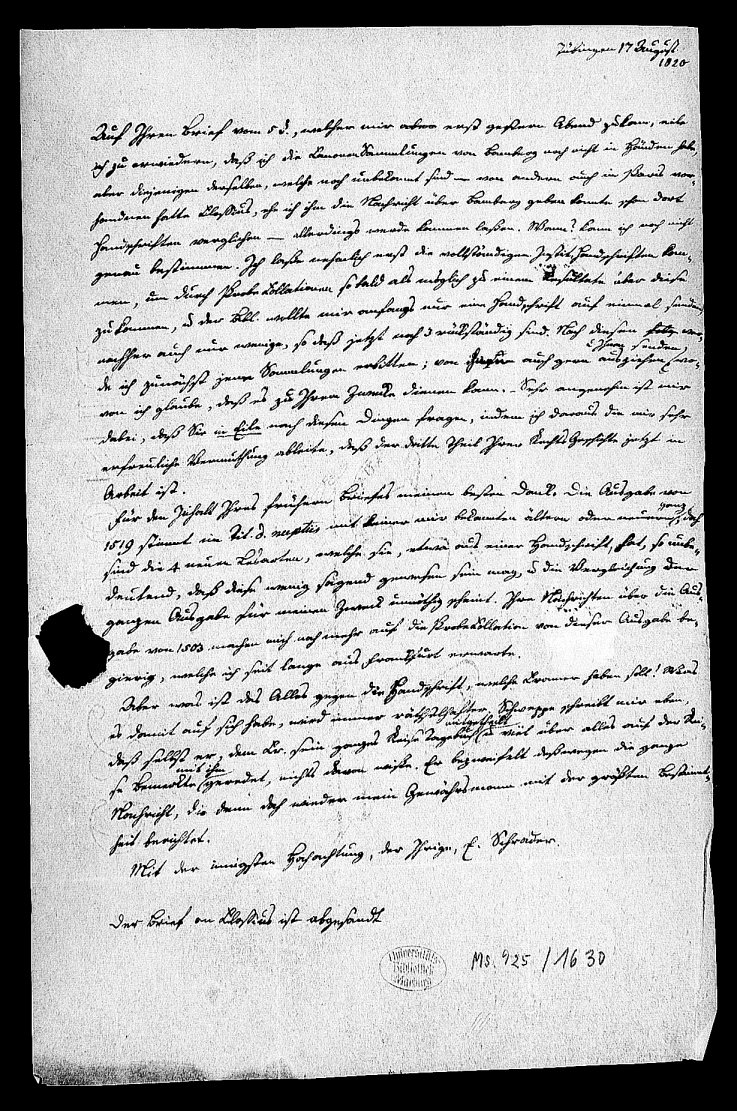 Tübingen 17 August
1820
Auf Ihren Brief vom 5 d., welcher mir aber erst gestern Abend zukam, eile
ich zu erwiedern, daß ich die Canonen Sammlungen von Bamberg noch nicht in Händen habe,
aber diejenigen derselben, welche noch unbekannt sind – von andern auch in Paris vor-
handenen hatte Clossius, ehe ich ihm die Nachricht über Bamberg geben konnte schon dort
Handschriften verglichen – allerdings werde kommen laßen. Wann? kann ich noch nicht
genau bestimmen. Ich laße nehmlich erst die vollständigen Instit. Handschriften kom-
men, um durch Probe Collationen so bald als möglich zu einem Resultate über diese
zu kommen, u der Bibl. wollte mir anfangs nur eine Handschrift auf einmal senden
nachher auch nur wenige, so daß jetzt noch 3 rückständig sind. Nach diesen wer-
de ich zunächst jene Sammlungen erbitten; von auch gern ausziehen u Ihnen senden, wo-
von ich glaube, daß es zu Ihrem Zwecke dienen kann. – Sehr angenehm ist mir
dabei, daß Sie in Eile nach diesen Dingen fragen, indem ich daraus die mir sehr
erfreuliche Vermuthung ableite, daß der dritte Theil Ihrer Rechts Geschichte jetzt in
Arbeit ist.
Für den Inhalt Ihres frühern Briefes meinen besten Dank. Die Ausgabe von
1519 stimmt im Tit. d. nuptiis mit keiner mir bekannten ältern oder neuern ganz, doch
sind die 4 neuen Lesarten, welche sie, etwa aus einer Handschrift, hat, so unbe-
deutend, daß diese wenig sagend gewesen sein mag, u die Vergleichung der
ganzen Ausgabe für meinen Zweck unnöthig scheint. Ihre Nachrichten über die Aus-
gabe von 1503 machen mich noch mehr auf die Probe Collation von dieser Ausgabe be-
gierig, welche ich seit lange aus Frankfurt erwarte.
Aber was ist das Alles gegen die Handschrift, welche Cramer haben soll! Was
es damit auf sich habe, wird immer räthselhafter. Schweppe schreibt mir eben,
daß selbst er, dem Cr. sein ganzes Reise Tagebuch mitgetheilt u mit über alles auf der Rei-
se bemerkte mit ihm geredet, nichts davon wiße. Er bezweifelt deswegen die ganze
Nachricht, die denn doch wieder mein Gewährsmann mit der größten Bestimmt-
heit berichtet.
Mit der innigsten Hochachtung, der Ihrige, E. Schrader.
Der Brief an Clossius ist abgesandt
Universitäts
Bibliothek
Marburg
Ms. 925 / 1630